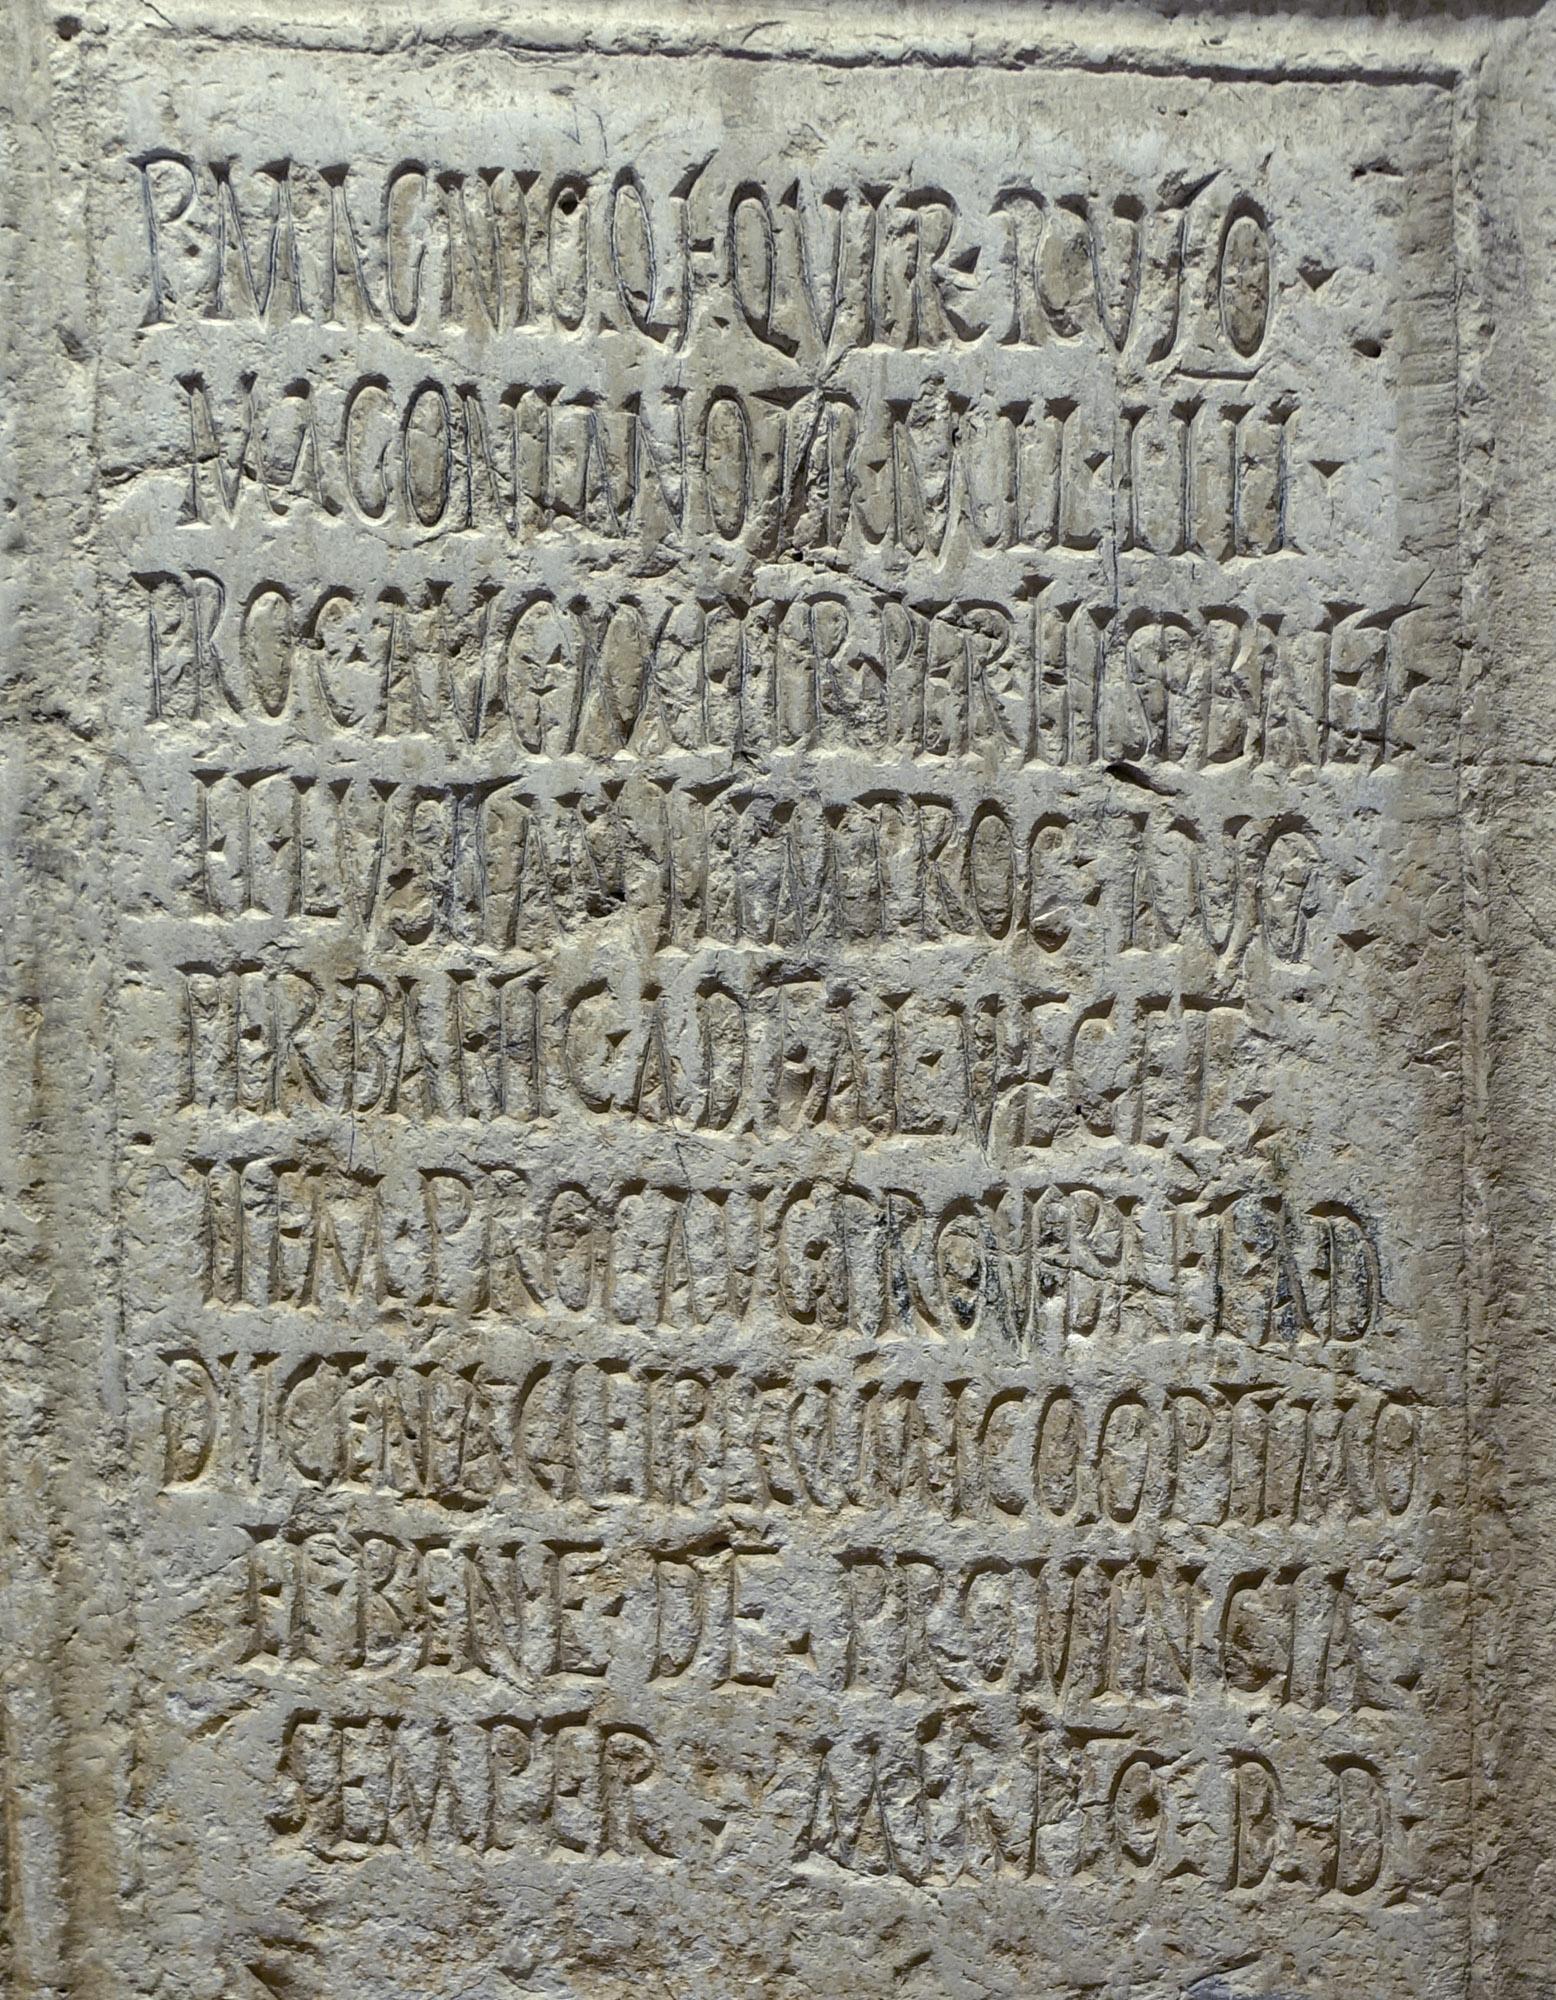 P·MAGNIO·Q·F·QVIR·RVFO·
MAGONIANO·TR·MIL·IIII·
PROC·AVG·XX·HER·PER·HISP·BAET·
ET·LVSITAN·ITEM·PROC·AVG·
PER·BAETIC·AD·FAL·VEGET·
ITEM·PROC·AVG·PROV·BAET·AD
DVCEN·ACILI·PLEC·AMICO·OPTIMO
ET·BENE·DE·PROVINCIA·
SEMPER·MERITO·D·D·